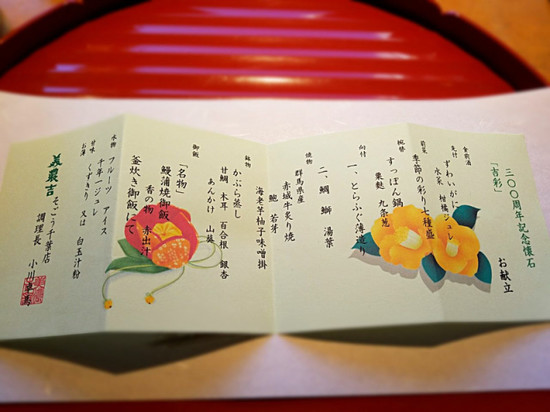 三〇〇周年記念懐石
「吉彩」
お献立
食前酒
先付
ずわいがに
水菜 柑橘ジュレ
前菜
季節の彩り七種盛
椀替
すっぽん鍋
粟麩 九条葱
向付
一、とらふぐ薄造り
二、鯛 鰤 湯葉
焼物
群馬県産
赤城牛炙り焼
鮑 若芽
海老芋柚子味噌掛
鉢物
かぶら蒸し
甘鯛 木耳 百合根 銀杏
あんかけ 山葵
御飯
「名物」
鰻蒲焼御飯
香の物 赤出汁
釜炊き御飯にて
水物
フルーツ アイス
千年ジュレ
甘味
くずきり 又は 白玉汁粉
お薄
美濃吉 そごう千葉店
調理長 小川